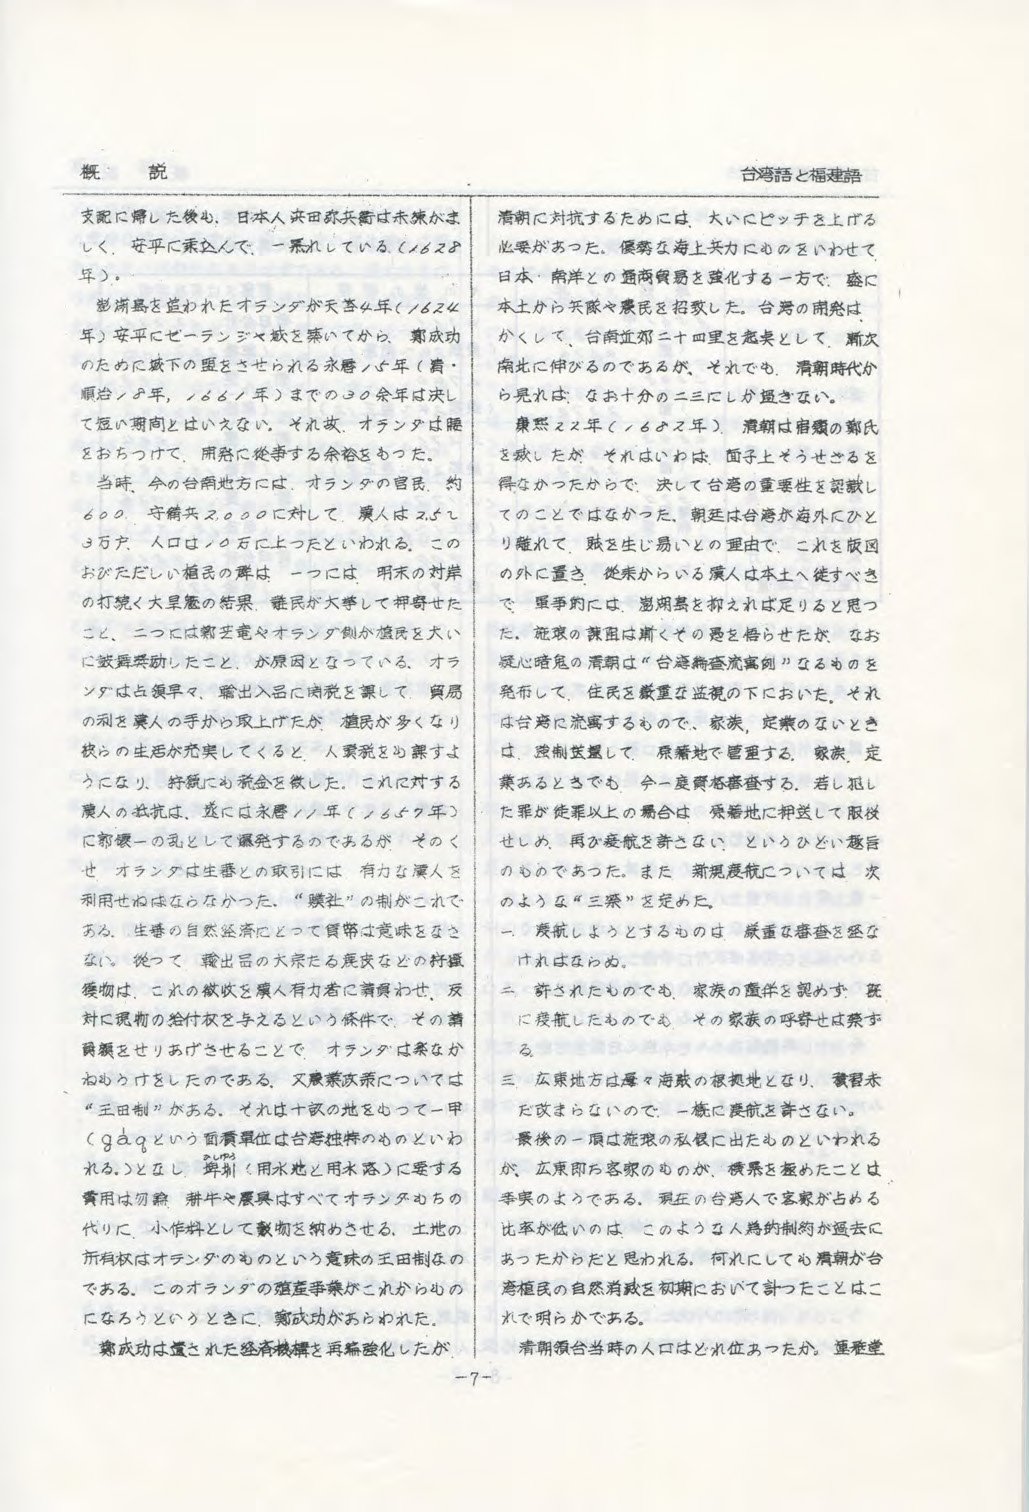 概　説
台湾語と福建語
支配に帰した後も、日本人浜田弥兵衛は未練がま
しく、安平に乗込んで、一暴れしている(1628
年)。
澎湖島を追われたオランダが天啓4年(1624
年)安平にゼーランジャ城を築いてから、鄭成功
のために城下の盟をさせられる永暦15年(清・
順治18年,1661年)までの30余年は決し
て短い期間とはいえない。それ故、オランダは腰
をおちつけて、開発に従事する余裕をもった。
当時、今の台南地方には、オランダの官民、約
600、守備兵2,000に対して、漢人は2.5~
3万戸、人口は10万に上ったといわれる。この
おびただしい植民の群は、一つには、明末の対岸
の打続く大旱魃の結果、難民が大挙して押寄せた
こと、二つには鄭芝竜やオランダ側が植民を大い
に鼓舞奨励したこと、が原因となっている。オラ
ンダは占領早々、輸出入品に関税を課して、貿易
の利を漢人の手から取上げたが、植民が多くなり
彼らの生活が充実してくると、人頭税をも課すよ
うになり、狩猟にも税金を徴した。これに対する
漢人の抵抗は、遂には永暦11年(1657年)
に郭懐一の乱として爆発するのであるが、そのく
せ、オランダは生番との取引には、有力な漢人を
利用せねばならなかった。“贌社”の制がこれで
ある。生番の自然経済にとって貨幣は意味をなさ
ない。従って、輸出品の大宗たる鹿皮などの狩猟
獲物は、これの徴収を漢人有力者に請負わせ、反
対に現物の給付权を与えるという条件で、その請
負額をせりあげさせることで、オランダは楽なか
ねもうけをしたのである。又農業政策については
“王田制”がある。それは十畝の地をもって一甲
(gàqという面積單位は台湾独特のものといわ
れる。)となし、埤圳(用水地と用水路)に要する
費用は勿論、耕牛や農具はすべてオランダもちの
代りに、小作料として穀物を納めさせる。土地の
所有权はオランダのものという意味の王田制なの
である。このオランダの殖産事業がこれからもの
になろうというときに、鄭成功があらわれた。
鄭成功は遺された経済機構を再編強化したが、
清朝に対抗するためには、大いにピッチを上げる
必要があった。優勢な海上兵力にものをいわせて、
日本・南洋との通商貿易を強化する一方で、盛に
本土から兵隊や農民を招致した。台湾の開発は、
かくして、台南近郊二十四里を起点として、漸次
南北に伸びるのであるが、それでも、清朝時代か
ら見れば、なお十分の二三にしか過ぎない。
康熙22年(1682年)、清朝は宿願の鄭氏
を敗したが、それはいわば、面子上そうせざるを
得なかったからで、決して台湾の重要性を認識し
てのことではなかった。朝廷は台湾が海外にひと
り離れて、賊を生じ易いとの理由で、これを版図
の外に置き、従来からいる漢人は本土へ徙すべき
で、軍事的には、澎湖島を抑えれば足りると思っ
た。施琅の諫阻は漸くその愚を悟らせたが、なお
疑心暗鬼の清朝は“台湾編査流寓例”なるものを
発布して、住民を厳重な监視の下においた。それ
は台湾に流寓するもので、家族,定業のないとき
は、強制送還して、原籍地で管理する。家族、定
業あるときでも、今一度資格審査する。若し犯し
た罪が徒罪以上の場合は、原籍地に押送して服役
せしめ、再び渡航を許さない、というひどい趣旨
のものであった。また、新規渡航については、次
のような“三禁”を定めた。
一、渡航しようとするものは、厳重な審査を経な
ければならぬ。
二、許されたものでも、家族の隨伴を認めず、既
に渡航したものでも、その家族の呼寄せは禁ず
る。
三、広東地方は屢々海賊の根拠地となり、積習未
だ改まらないので、一概に渡航を許さない。
最後の一項は施琅の私恨に出たものといわれる
が、広東即ち客家のものが、横暴を極めたことは
事実のようである。現在の台湾人で客家が占める
比率が低いのは、このような人為的制約が過去に
あったからだと思われる。何れにしても清朝が台
湾植民の自然消滅を初期において計ったことはこ
れで明らかである。
清朝領台当時の人口はどれ位あったか。連雅堂
-7-